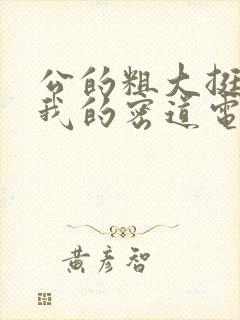 公的粗大挺
我的密道电
黄彦智